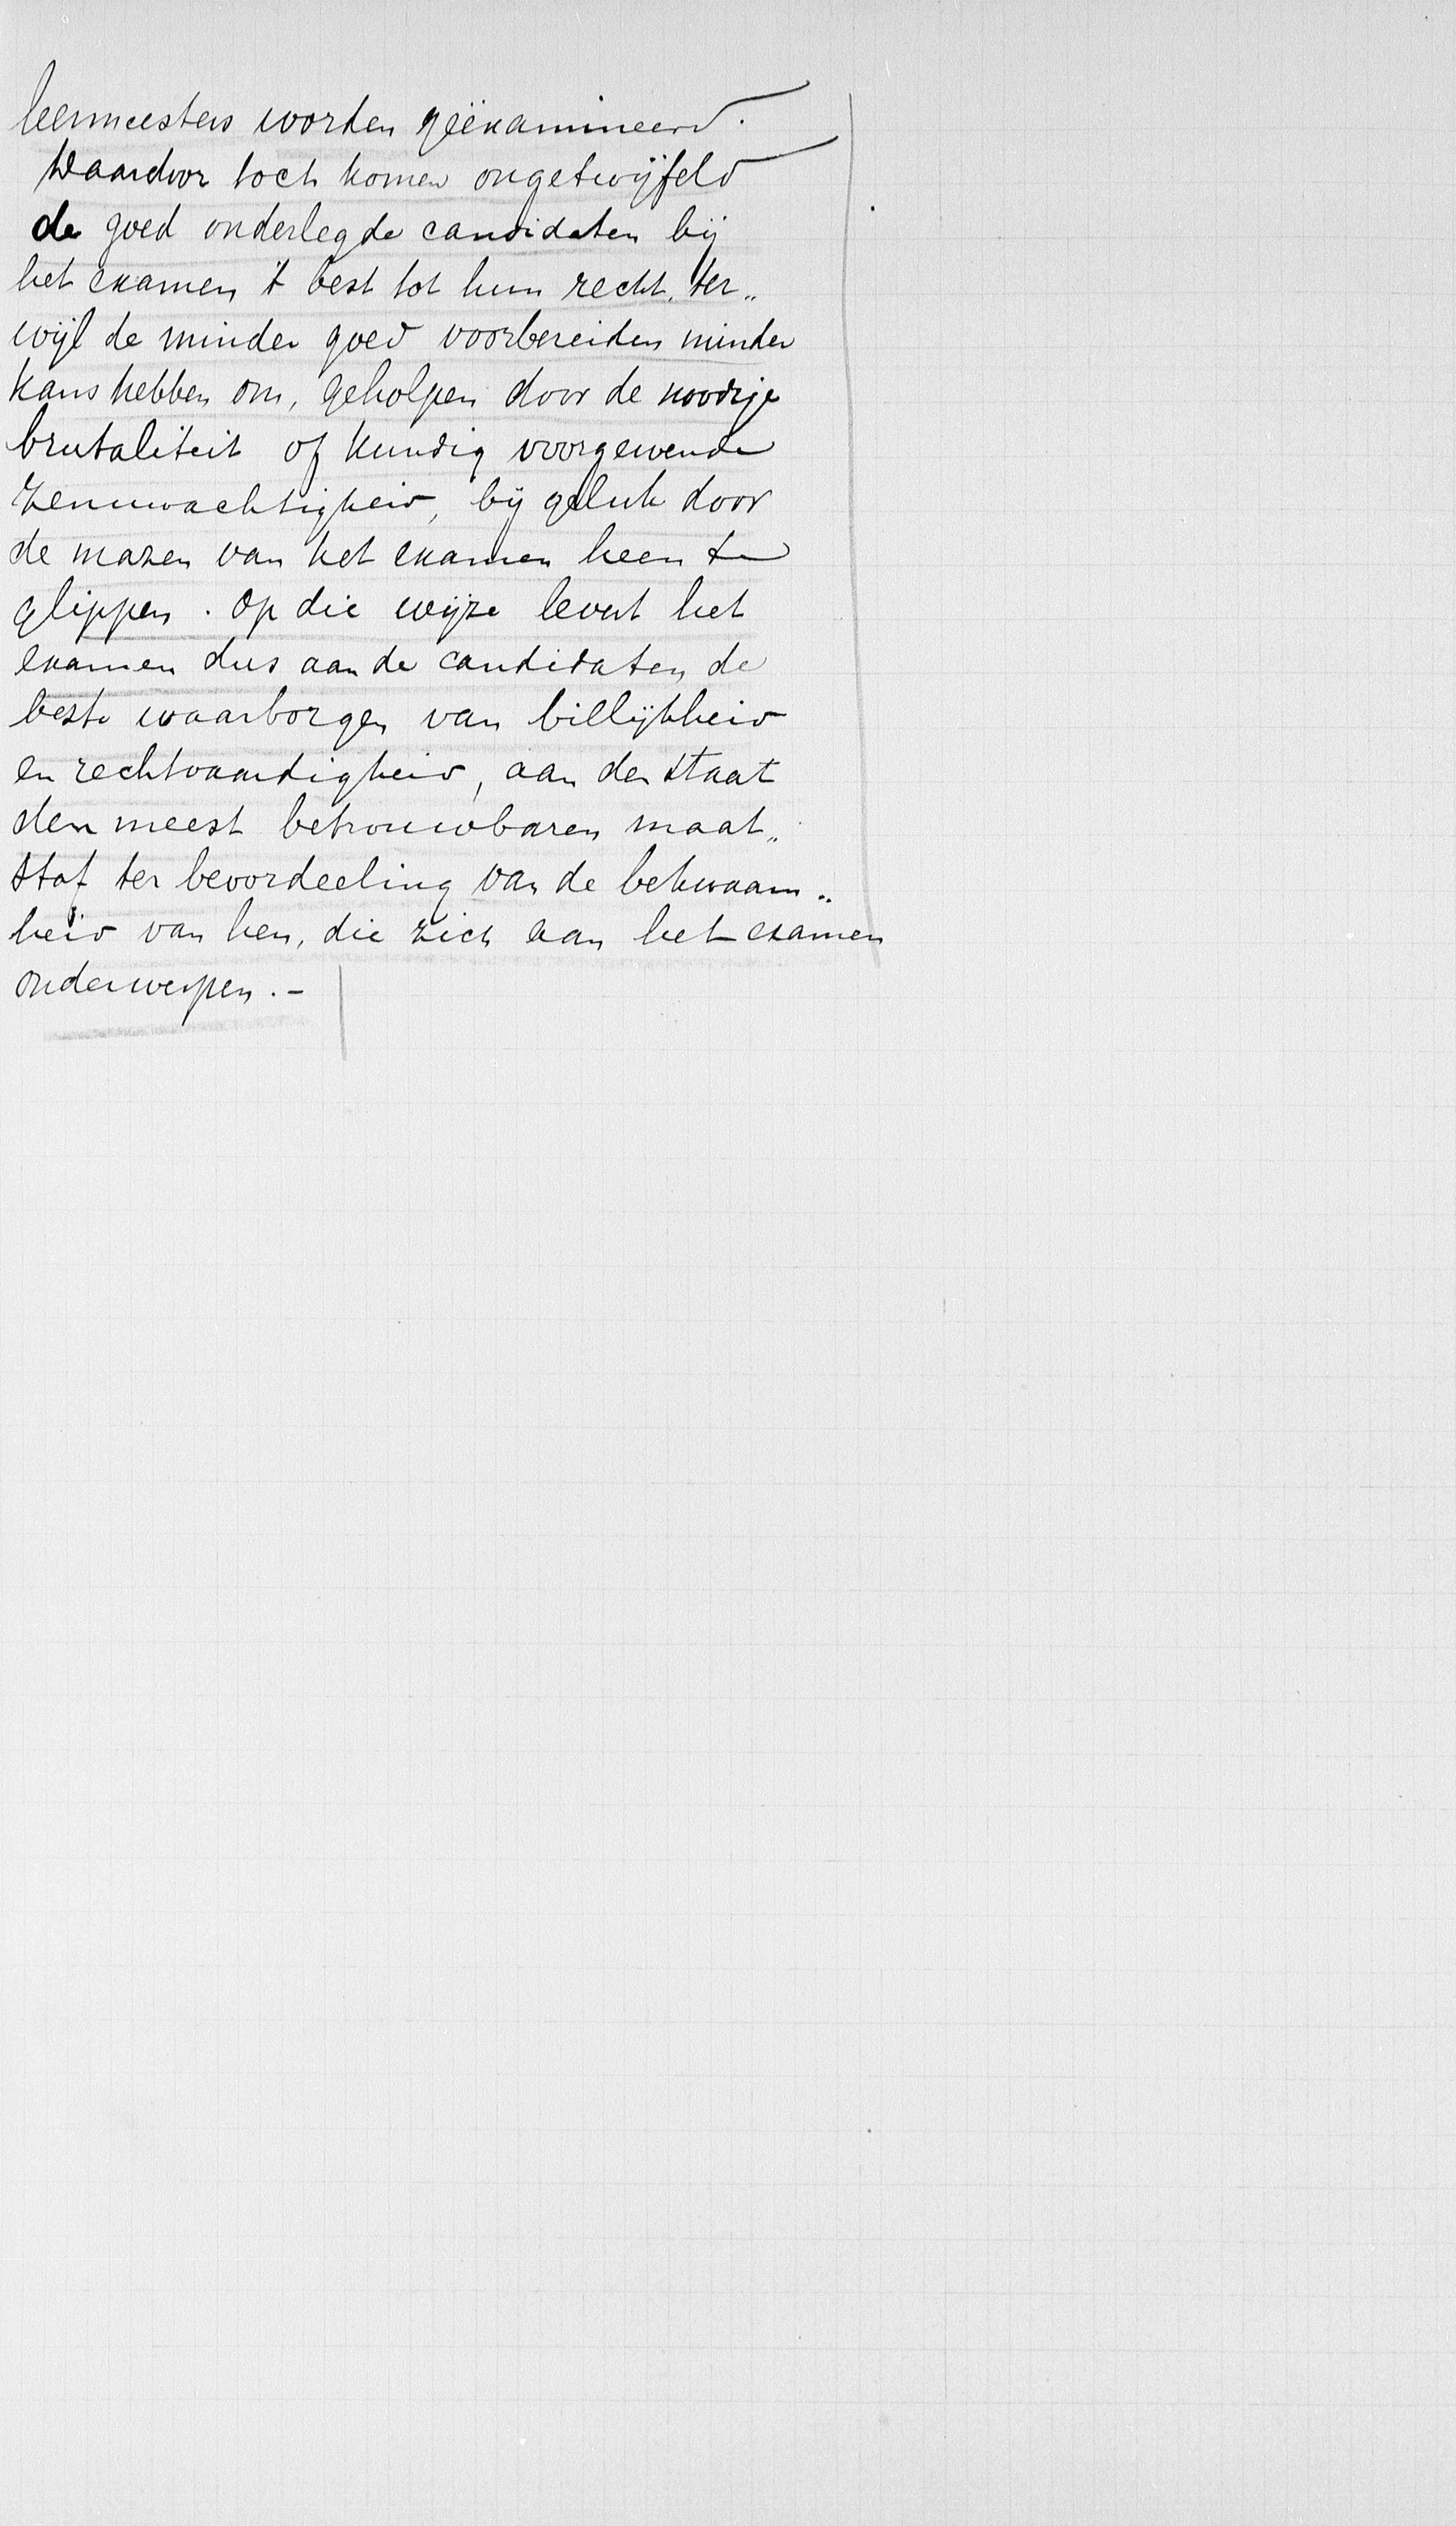 leermeesters worden geëxamineerd.
Daardoor toch komen ongetwijfeld
de goed onderlegde candidaten bij
het examen 't best tot hun recht, ter„
wijl de minder goed voorbereiden minder
kans hebben om, geholpen door de noodige
brutaliteit of kundig voorgewende
zenuwachtigheid, bij geluk door
de mazen van het examen heen te
glippen. Op die wijze levert het
examen dus aan de candidaten de
beste waarborgen van billijkheid
en rechtvaardigheid, aan den staat
den meest betrouwbaren maat„
staf ter beoordeeling van de bekwaam„
heid van hen, die zich aan het examen
onderwerpen.-